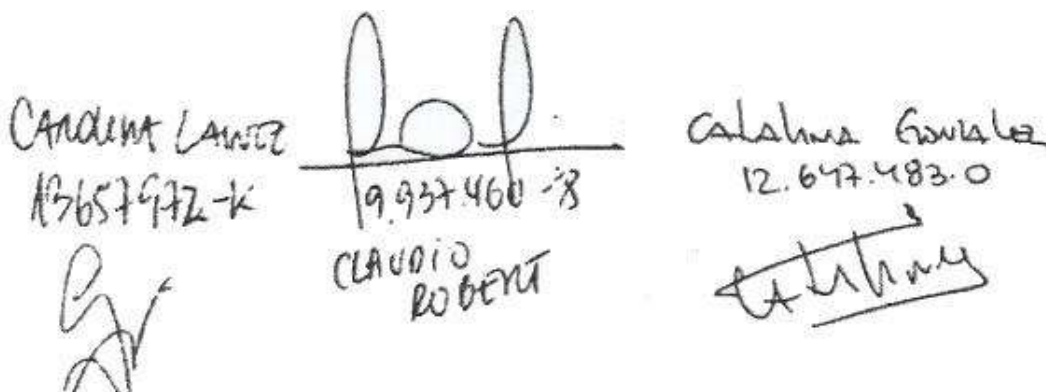 CAROLINA
13657972-K
9.937.460-8
CLAUDIO
ROBERT
Catalina Gonzalez
12.647.483.0
Catalina